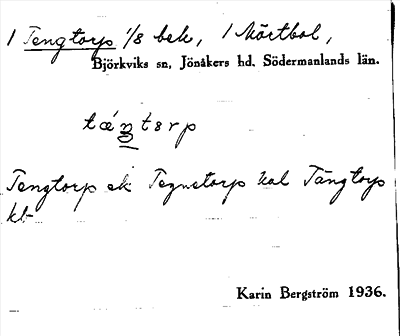 1 Tengtorp 1/8 bek, 1 Mörtbol,
Björkviks sn, Jönåkers hd, Södermanlands län.
tǽŋtərp
Tengtorp ek Tegnetorp kal Tängtorp
kb
Karin Bergström 1936.